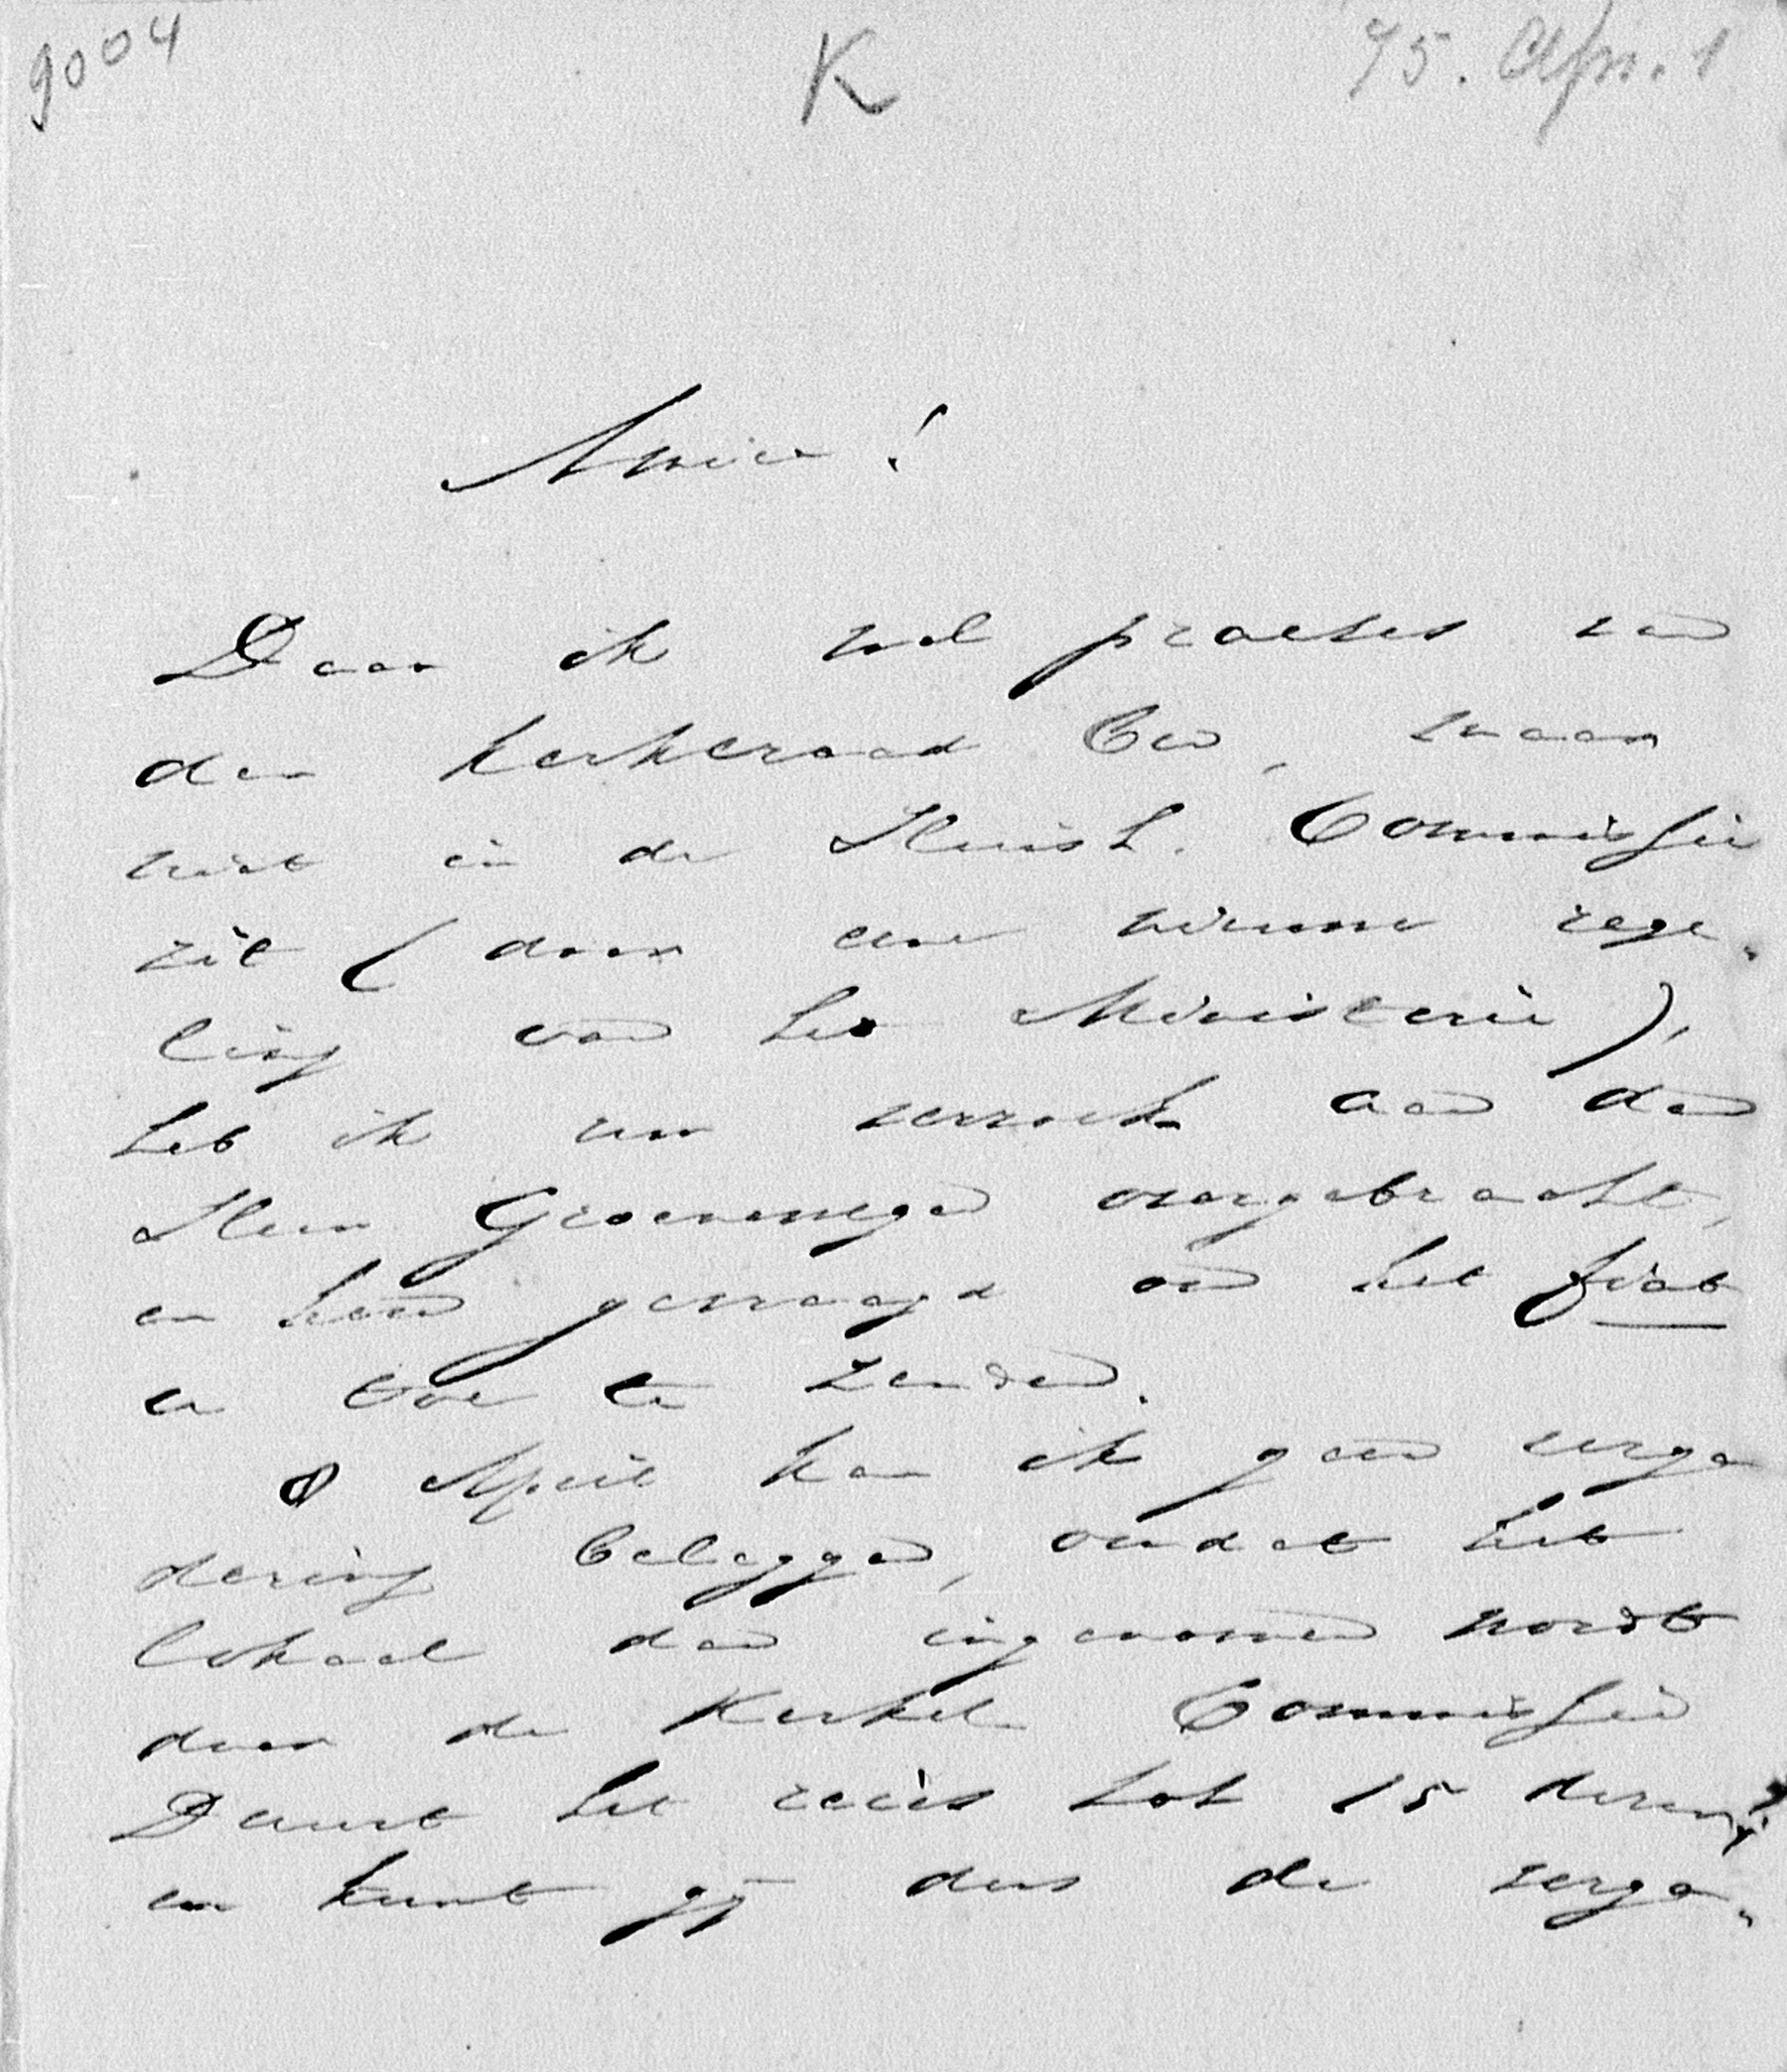 9004 K 75. Apr. 1
Amice!
Daar ik wel praeses van
den kerkeraad ben, maar
niet in de Huish. Commissie
zit (door eene nieuwe rege„
ling van het Ministerie),
heb ik uw verzoek aan den
Heer Groenewegen overgebracht,
en hem gevraagd om het fiat
u toe te zenden.
8 April kan ik geen verga
dering beleggen, omdat het
lokaal dan ingenomen wordt
door de Kerkel. Commissie
Duurt het reces tot 15 dezer,
en kunt gij dus de verga„